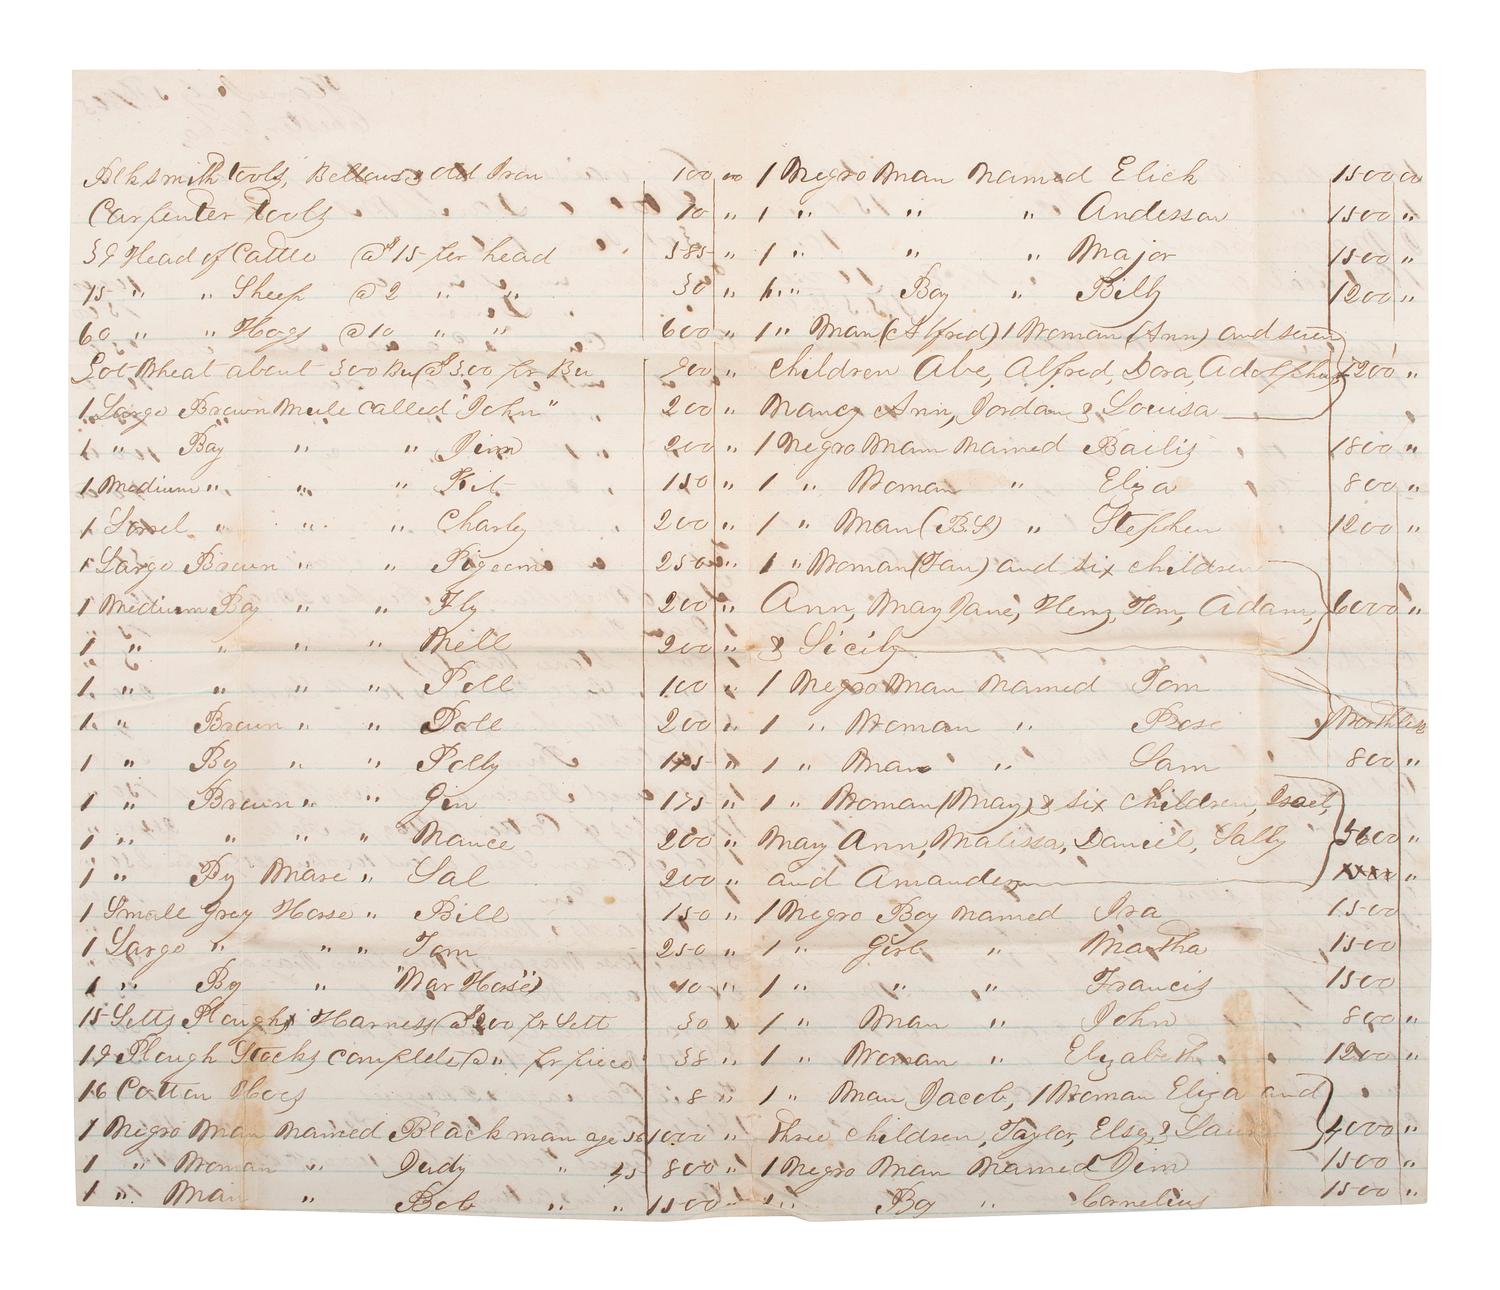 Blksmith tools, Bellows & old Iron 100 00
Carpenter tools 10 "
39 Head of Cattle @ $15 per head 585 "
15 " " Sheep @ 2 " " 30 "
60 " " Hogs @ 10 " " 600 "
Lot Wheat about 300 Bu @ $3.00 pr Bu 900 "
1 Large Brown Mule called "John" 200 "
1 " Bay " " Jim 200 "
1 Medium " " " Kit 150 "
1 Sorrel " " " Charly 200 "
1 Large Brown " " Pigeon 250 "
1 Medium Bay " " Fly 200 "
1 " " " " Mell 200 "
1 " " " " Poll 100 "
1 " Brown " " Doll 200 "
1 " By " " Polly 175 "
1 " Brown " " Gin 175 "
1 " " " " Mance 200 "
1 " By Mare " Sal 200 "
1 Small Grey Horse " Bill 150 "
1 Large " " " Tom 250 "
1 " By " "War Horse" 10 "
15 Setts Plough Harness @ $2.00 pr Sett 30 "
19 Plough Stocks complete @ " pr piece 38 "
16 Cotton Hoes 8 "
1 Negro Man named Blackman age 56 1000 "
1 " Woman " Judy " 45 800 "
1 " Man " Bob " " 1500 "
1 Negro Man Named Elick 1500 00
1 " " " Anderson 1500 "
1 " " " Major 1500 "
1 " Boy " Billy 1200 "
1 " Man (Alfred) 1 Woman (Ann) and seven
children Abe, Alfred, Dora, Adolphus 7200 "
Nancy Ann, Jordan & Louisa "
1 Negro Man named Bailis 1800 "
1 " Woman " Eliza 800 "
1 " Man (B.S) " Stephen 1200 "
1 " Woman (Fan) and six children
Ann, May Jane, Henry, Tom, Adam, 6000 "
& Sicily
1 Negro Man named Tom
1 " Woman " Rose Worthless
1 " Man " Sam 800 "
1 " Woman (May) & six children, Israel,
May Ann, Malissa, Daniel, Sally 5600 "
and Amanda "
1 Negro Boy named Ira 1500
1 " Girl " Martha 1500
1 " " " Francis 1500
1 " Man " John 800 "
1 " Woman " Elizabeth 1200 "
1 " Man Jacob, 1 Woman Eliza and
three children, Taylor, Elsy, & 4000 "
1 Negro Man Named Jim 1500 "
1 " Boy " Cornelius 1500 "